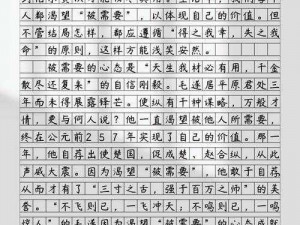 人都渴望“被需要”，以体现自己的价值。但
不管结局怎样，都应遵循“得之我幸，失之我
命”的原则，这样方能浅笑安然。
被需要的心态是“天生我材必有用，千金
散尽还复来”的自信刚毅。毛遂居平原君处三
年而未得展露锋芒。便纵有千种谋略，万般才
情，更与何人说？他一直渴望被他人所需要，
终在公元前257年实现了自己的价值。那一
年，他自荐出使楚国，促成楚、赵合纵，从此
声威大震。因为渴望“被需要”，他敢于自荐
从而才有了“三寸之舌，强于百万之师”的美
誉。“不飞则已，一飞冲天，不鸣则已，一鸣
惊人”的毛遂因为渴望“被需要”的心态成就